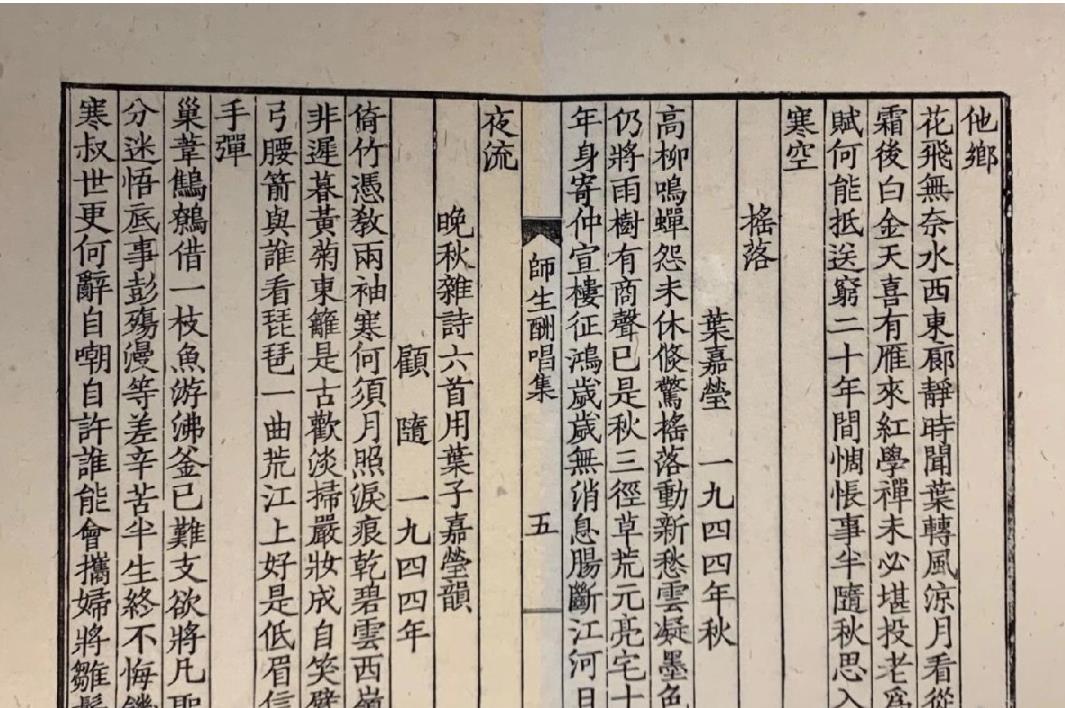 他鄉
花飛無奈水西東廊靜時聞葉轉風涼月看從
霜後白金天喜有雁來紅學禪未必堪投老爲
賦何能抵送窮二十年間惆悵事半隨秋思入
寒空
搖落
葉嘉瑩 一九四四年秋
高柳鳴蟬怨未休倐驚搖落動新愁雲凝墨色
仍將雨樹有商聲已是秋三徑草荒元亮宅十
年身寄仲宣樓征鴻歲歲無消息腸斷江河日
夜流
師生酬唱集
五
晚秋雜詩六首用葉子嘉瑩韻
顧 隨 一九四四年
倚竹憑教兩袖寒何須月照淚痕乾碧雲西嶺
非遲暮黃菊東籬是古歡淡掃嚴妝成自笑臂
弓腰箭與誰看琵琶一曲荒江上好是低眉信
手彈
巢葦鷦鷯借一枝魚游沸釜已難支欲將凡聖
分迷悟底事彭殤漫等差辛苦半生終不悔饑
寒叔世更何辭自嘲自許誰能會攜婦將雛鬢